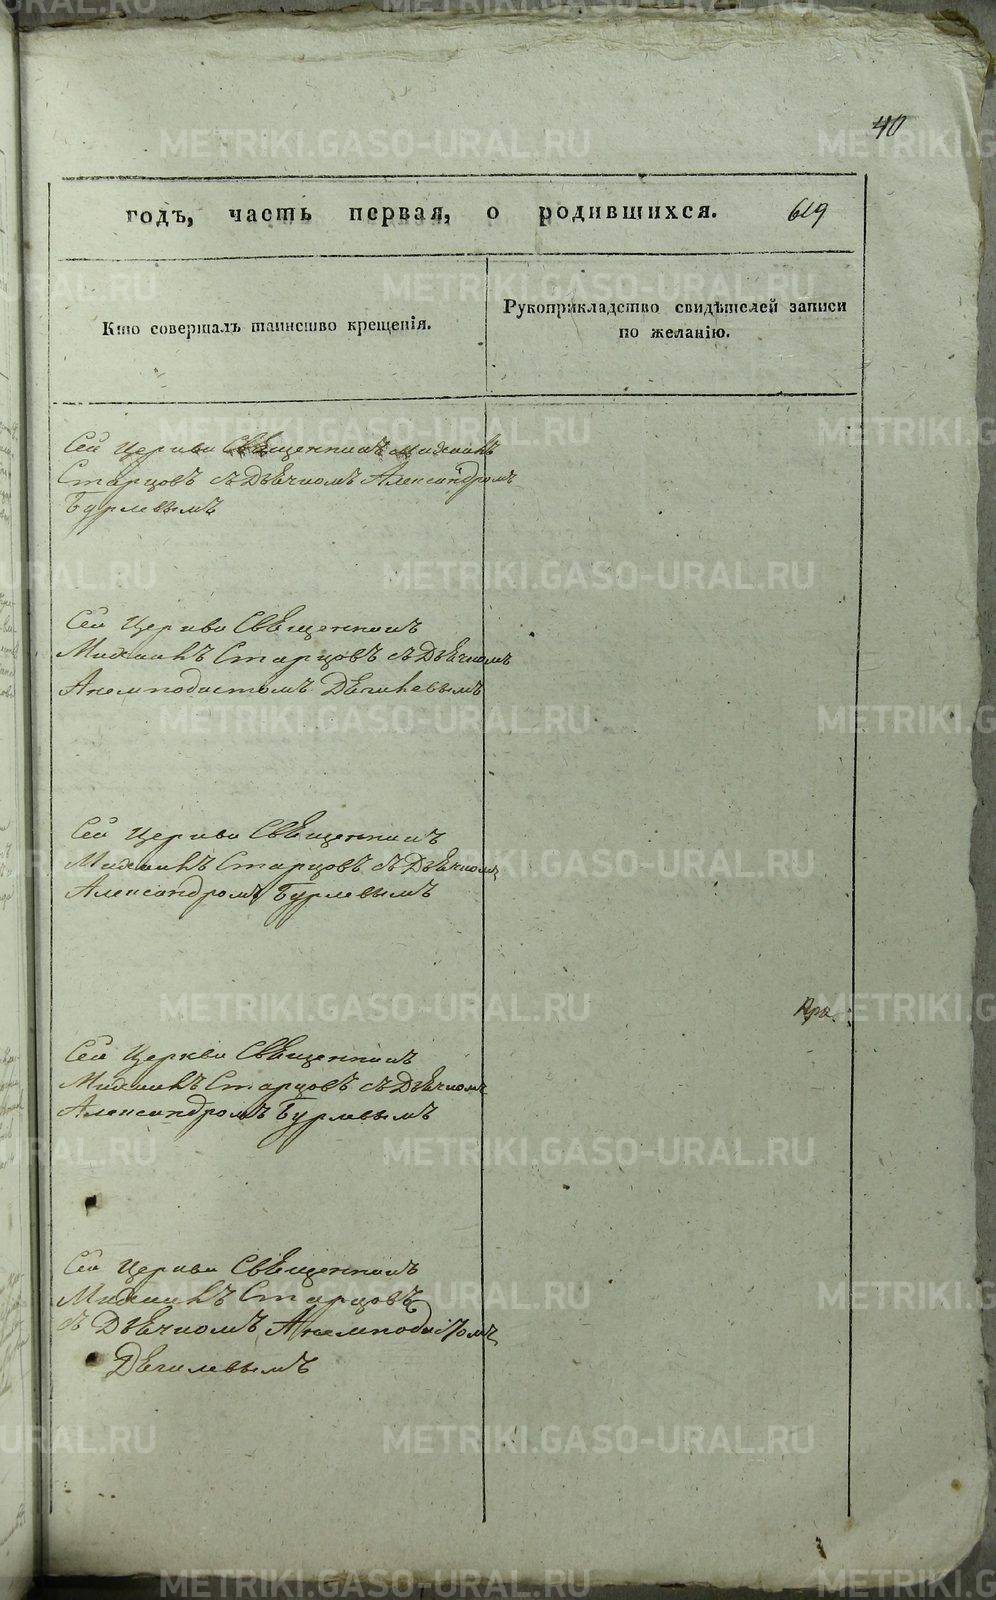 40
годъ, часть первая, о родившихся. 619
Кто совершалъ таинство крещенія.
Рукоприкладство свидѣтелей записи
по желанію.
Сей Церкви Священникъ Михаилъ
Старцовъ съ Дьячкомъ Александромъ
Бурлевымъ
Сей Церкви Священникъ
Михаилъ Старцовъ съ Дьячкомъ
Анемподистомъ Дѣгилевымъ
Сей Церкви Священникъ
Михаилъ Старцовъ съ Дьячкомъ
Александромъ Бурлевымъ
Сей Церкви Священникъ
Михаилъ Старцовъ съ Дьячкомъ
Александромъ Бурлевымъ
Сей Церкви Священникъ
Михаилъ Старцовъ
съ Дьячкомъ Анемподистомъ
Дѣгилевымъ
METRIKI.GASO-URAL.RU